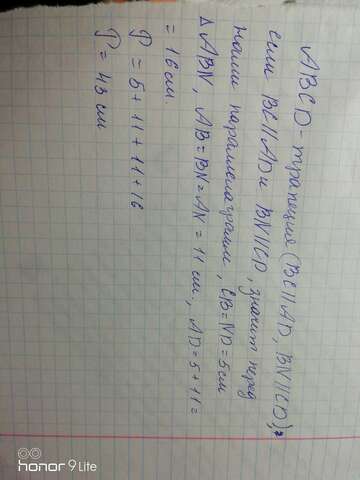 ABCD - трапеция (BC||AD, BN||CD),
если BC||AD и BN||CD, значит перед
нами параллелаграмм, CB=ND=5см
Δ ABN, AB=BN=AN=11 см, AD=5+11=
=16 см
P=5+11+11+16
P=43 см
honor 9 Lite